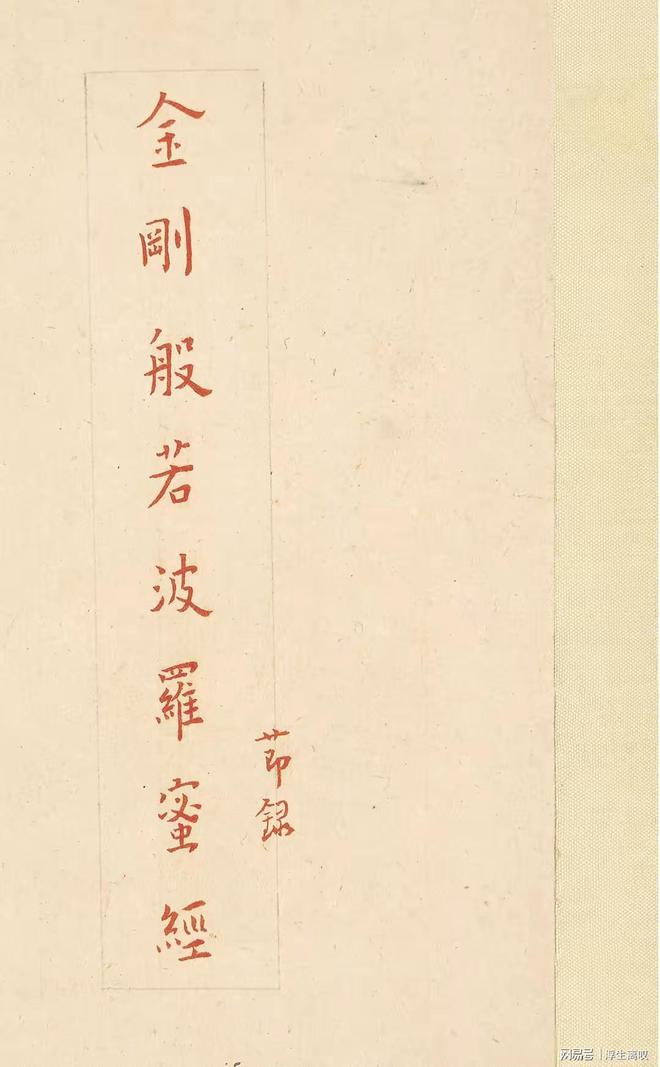 金剛般若波羅蜜經
節錄
网易号 | 浮生离叹